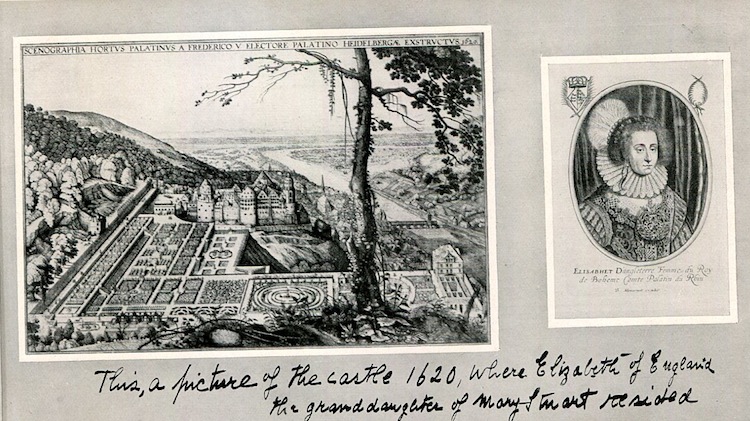 SCENOGRAPHIA HORTVS PALATINVS A FREDERICO V ELECTORE PALATINO HEIDELBERGÆ EXSTRVCTVS 1620.
ELISABHET Dangleterre Femme du Roy
de Boheme Comte Palatin du Rhin
This, a picture of the castle 1620, where Elizabeth of England
the granddaughter of Mary Stuart resided